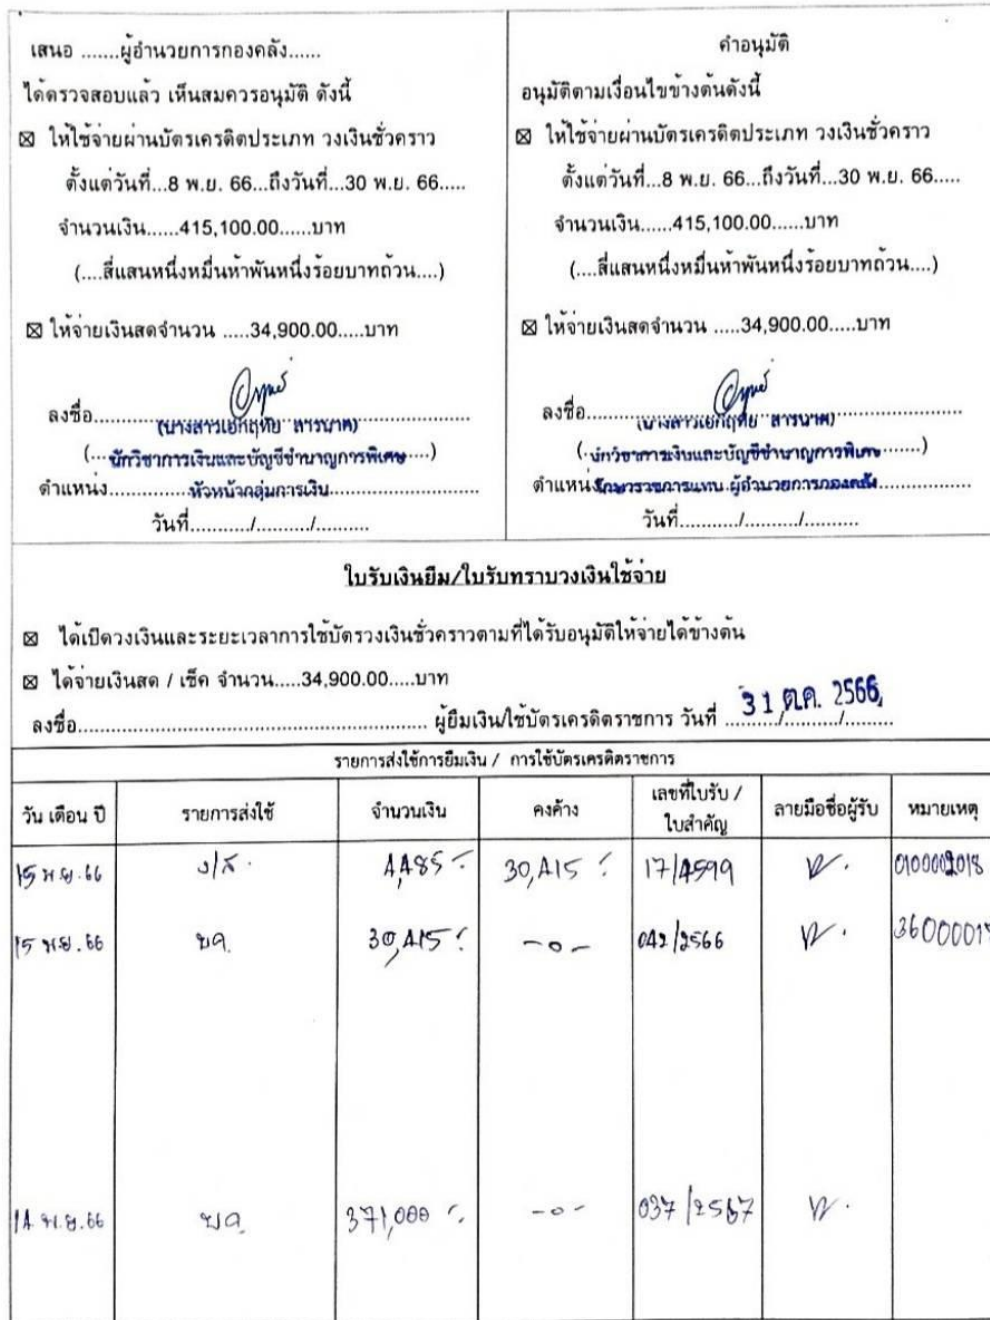 เสนอ .......ผู้อำนวยการกองคลัง......
ได้ตรวจสอบแล้ว เห็นสมควรอนุมัติ ดังนี้
☒ ให้ใช้จ่ายผ่านบัตรเครดิตประเภท วงเงินชั่วคราว
ตั้งแต่วันที่...8 พ.ย. 66...ถึงวันที่...30 พ.ย. 66.....
จำนวนเงิน......415,100.00......บาท
(....สี่แสนหนึ่งหมื่นห้าพันหนึ่งร้อยบาทถ้วน....)
☒ ให้จ่ายเงินสดจำนวน .....34,900.00.....บาท
ลงชื่อ..........
(นางสาวเอกฤทัย สารนาค)
(...นักวิชาการเงินและบัญชีชำนาญการพิเศษ....)
ตำแหน่ง..............หัวหน้ากลุ่มการเงิน..........
วันที่.........../.........../..........
คำอนุมัติ
อนุมัติตามเงื่อนไขข้างต้นดังนี้
☒ ให้ใช้จ่ายผ่านบัตรเครดิตประเภท วงเงินชั่วคราว
ตั้งแต่วันที่...8 พ.ย. 66...ถึงวันที่...30 พ.ย. 66.....
จำนวนเงิน......415,100.00......บาท
(....สี่แสนหนึ่งหมื่นห้าพันหนึ่งร้อยบาทถ้วน....)
☒ ให้จ่ายเงินสดจำนวน .....34,900.00.....บาท
ลงชื่อ..........
(นางสาวเอกฤทัย สารนาค)
(.นักวิชาการเงินและบัญชีชำนาญการพิเศษ.......)
ตำแหน่งรักษาราชการแทน ผู้อำนวยการกองคลัง..........
วันที่.........../.........../..........
ใบรับเงินยืม/ใบรับทราบวงเงินใช้จ่าย
☒ ได้เปิดวงเงินและระยะเวลาการใช้บัตรวงเงินชั่วคราวตามที่ได้รับอนุมัติให้จ่ายได้ข้างต้น
☒ ได้จ่ายเงินสด / เช็ค จำนวน.....34,900.00.....บาท
ลงชื่อ.......... ผู้ยืมเงิน/ใช้บัตรเครดิตราชการ วันที่ 31 ต.ค. 2566
รายการส่งใช้การยืมเงิน / การใช้บัตรเครดิตราชการ
วัน เดือน ปี รายการส่งใช้ จำนวนเงิน คงค้าง เลขที่ใบรับ / ใบสำคัญ ลายมือชื่อผู้รับ หมายเหตุ
15 พ.ย. 66 ง/ส. 4,485 30,415 17/4599
15 พ.ย. 66 บค. 30,415 -0- 042/2566
14 พ.ย. 66 บค. 371,000 -0- 037/2567